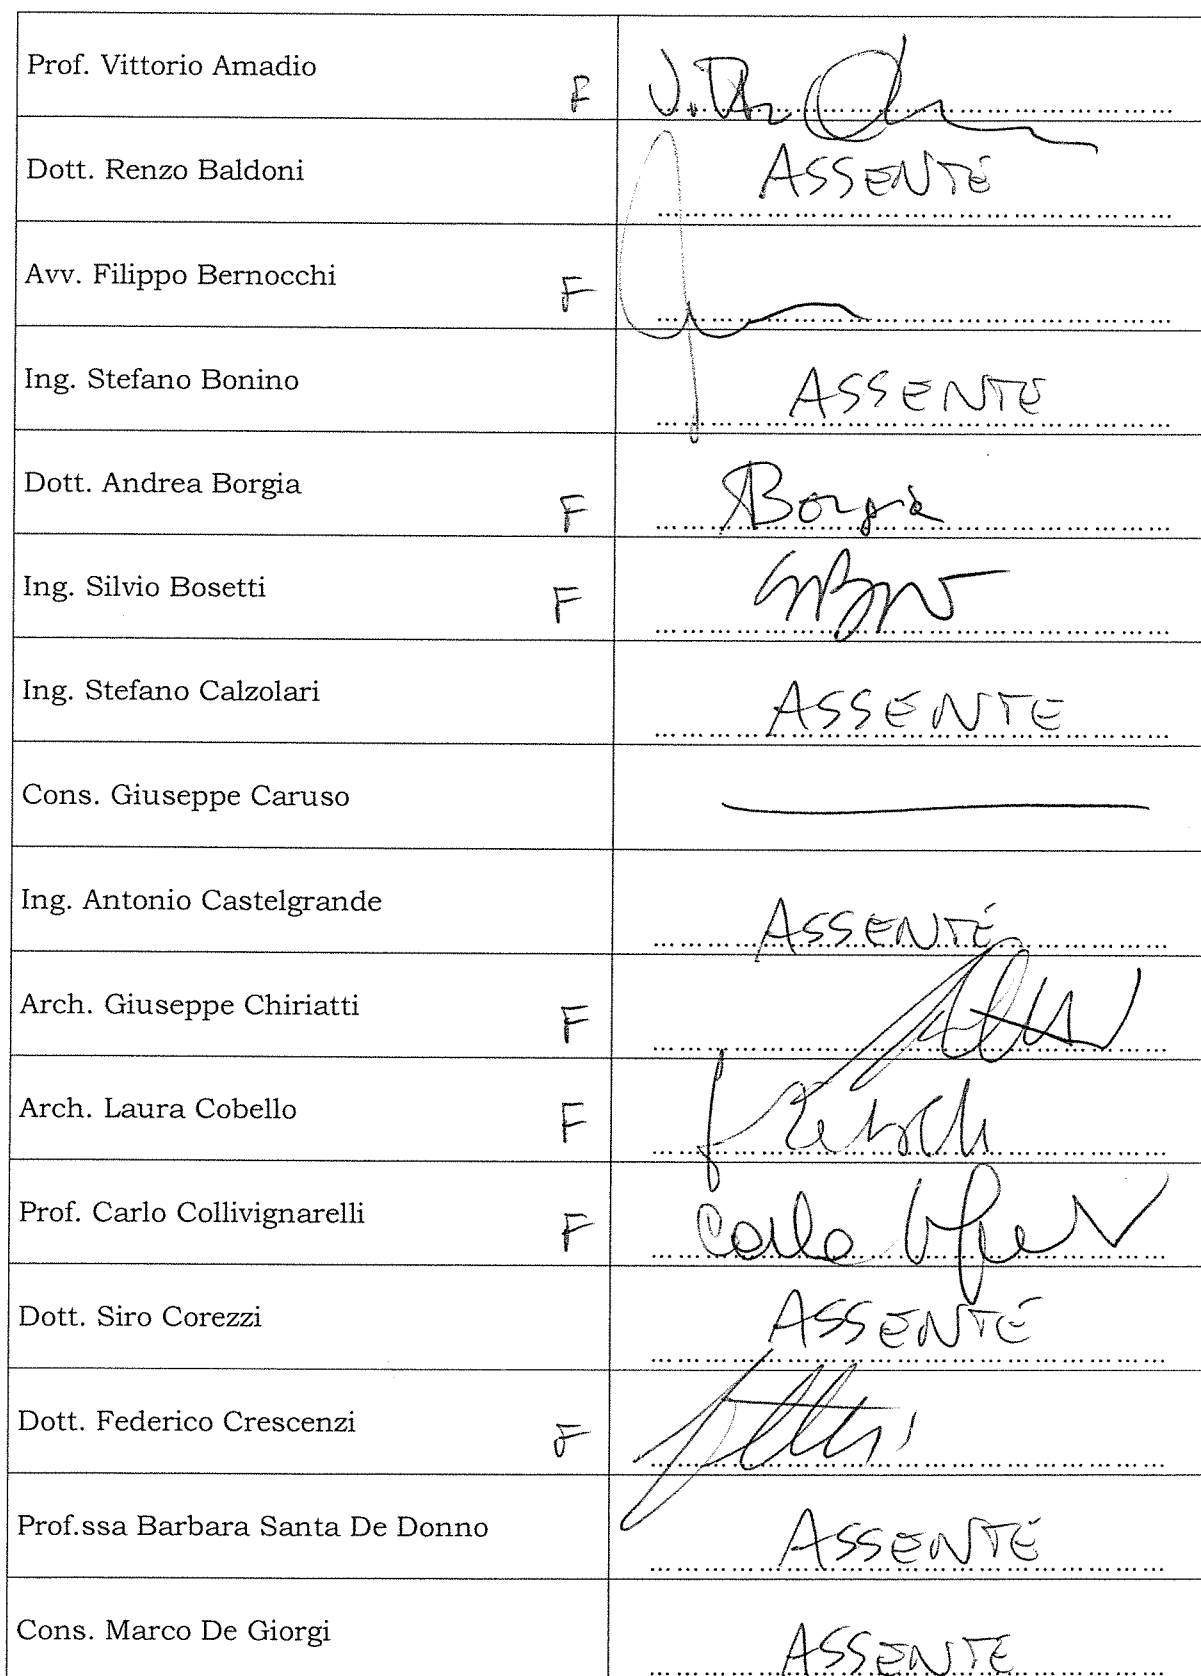 Prof. Vittorio Amadio F
Dott. Renzo Baldoni ASSENTE
Avv. Filippo Bernocchi F
Ing. Stefano Bonino ASSENTE
Dott. Andrea Borgia F ABorgia
Ing. Silvio Bosetti F
Ing. Stefano Calzolari ASSENTE
Cons. Giuseppe Caruso
Ing. Antonio Castelgrande ASSENTE
Arch. Giuseppe Chiriatti F
Arch. Laura Cobello F
Prof. Carlo Collivignarelli F Carlo
Dott. Siro Corezzi ASSENTE
Dott. Federico Crescenzi F
Prof.ssa Barbara Santa De Donno ASSENTE
Cons. Marco De Giorgi ASSENTE